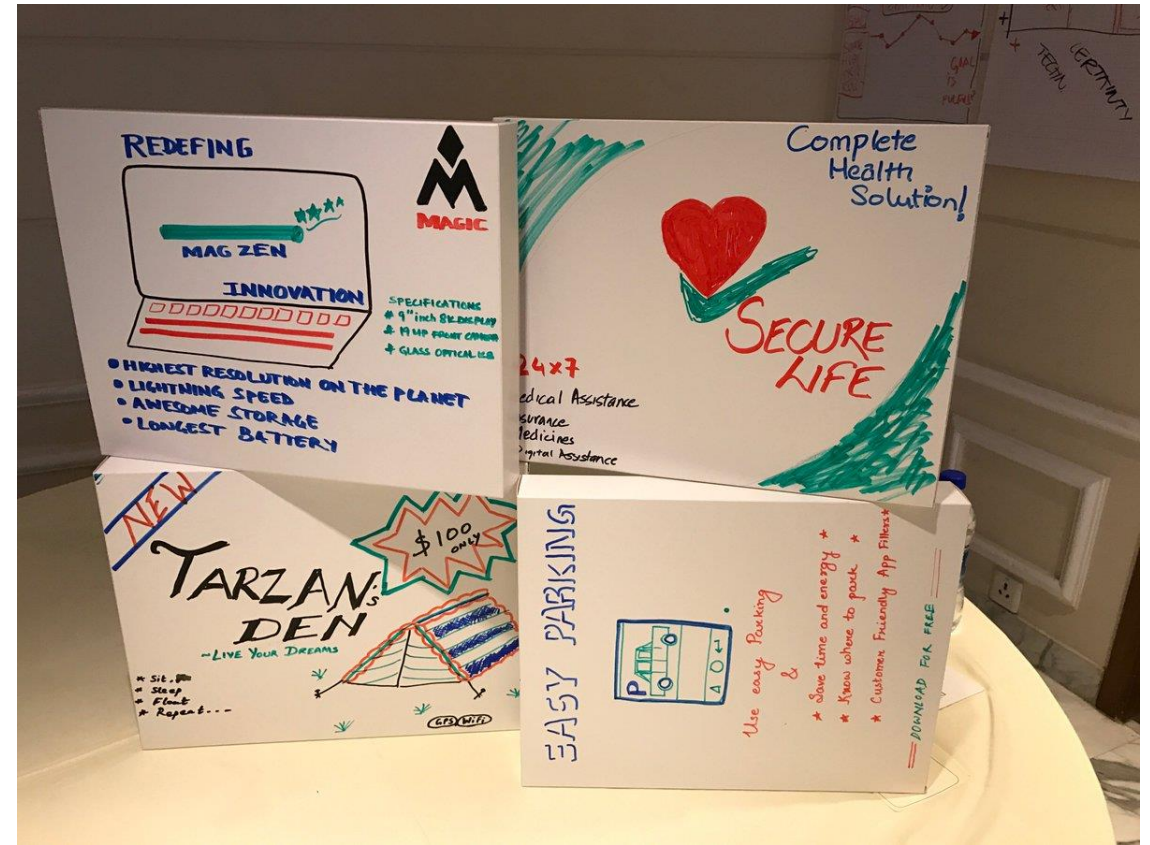 REDEFING
MAGZEN
INNOVATION
MAGIC
SPECIFICATIONS
# 9" inch 8K DISPLAY
# 19 MP FRONT CAMERA
# GLASS OPTICAL
• HIGHEST RESOLUTION ON THE PLANET
• LIGHTNING SPEED
• AWESOME STORAGE
• LONGEST BATTERY
Complete
Health
Solution!
SECURE
LIFE
24x7
edical Assistance
surance
Medicines
igital Assystance
NEW
$100
ONLY
TARZAN's
DEN
~LIVE YOUR DREAMS
* Sit.
* Sleep
* Float
* Repeat...
GPS WiFi
EASY PARKING
P
Use easy Parking
&
* Save time and energy *
* Know where to park *
* Customer Friendly App Fillers*
DOWNLOAD FOR FREE
GOAL
IS
CERTAINTY